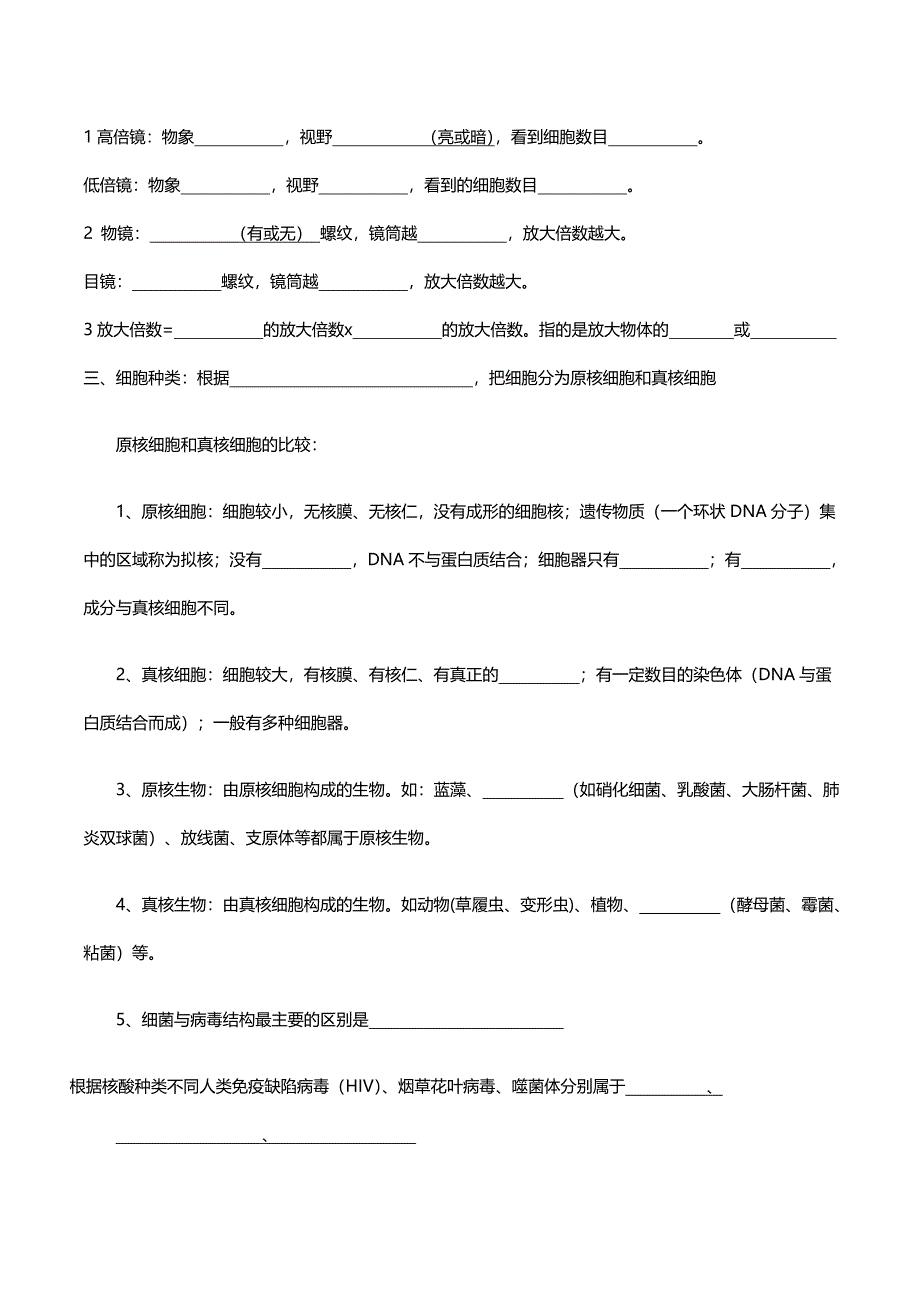 1高倍镜：物象___________，视野____________（亮或暗），看到细胞数目___________。
低倍镜：物象___________，视野___________，看到的细胞数目___________。
2 物镜：__________（有或无）__螺纹，镜筒越___________，放大倍数越大。
目镜：___________螺纹，镜筒越___________，放大倍数越大。
3放大倍数=___________的放大倍数x___________的放大倍数。指的是放大物体的________或___________
三、细胞种类：根据______________________________，把细胞分为原核细胞和真核细胞
原核细胞和真核细胞的比较：
1、原核细胞：细胞较小，无核膜、无核仁，没有成形的细胞核；遗传物质（一个环状DNA分子）集
中的区域称为拟核；没有___________，DNA不与蛋白质结合；细胞器只有___________；有___________，
成分与真核细胞不同。
2、真核细胞：细胞较大，有核膜、有核仁、有真正的__________；有一定数目的染色体（DNA与蛋
白质结合而成）；一般有多种细胞器。
3、原核生物：由原核细胞构成的生物。如：蓝藻、__________（如硝化细菌、乳酸菌、大肠杆菌、肺
炎双球菌）、放线菌、支原体等都属于原核生物。
4、真核生物：由真核细胞构成的生物。如动物(草履虫、变形虫)、植物、__________（酵母菌、霉菌、
粘菌）等。
5、细菌与病毒结构最主要的区别是________________________
根据核酸种类不同人类免疫缺陷病毒（HIV）、烟草花叶病毒、噬菌体分别属于__________、
__________________、__________________